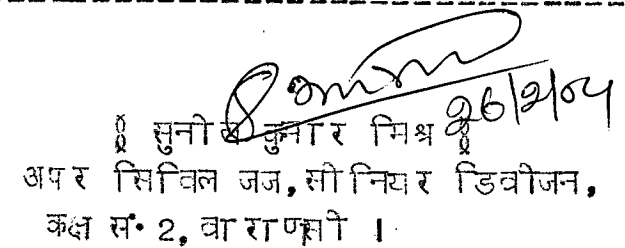 26/2/04
सुनील कुमार मिश्र
अपर सिविल जज, सीनियर डिवीजन,
कक्ष सं॰ 2, वाराणसी ।